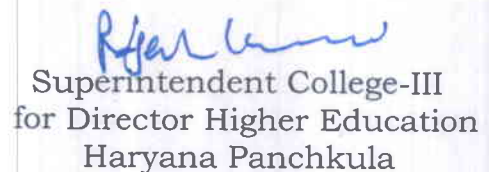 Superintendent College-III
for Director Higher Education
Haryana Panchkula